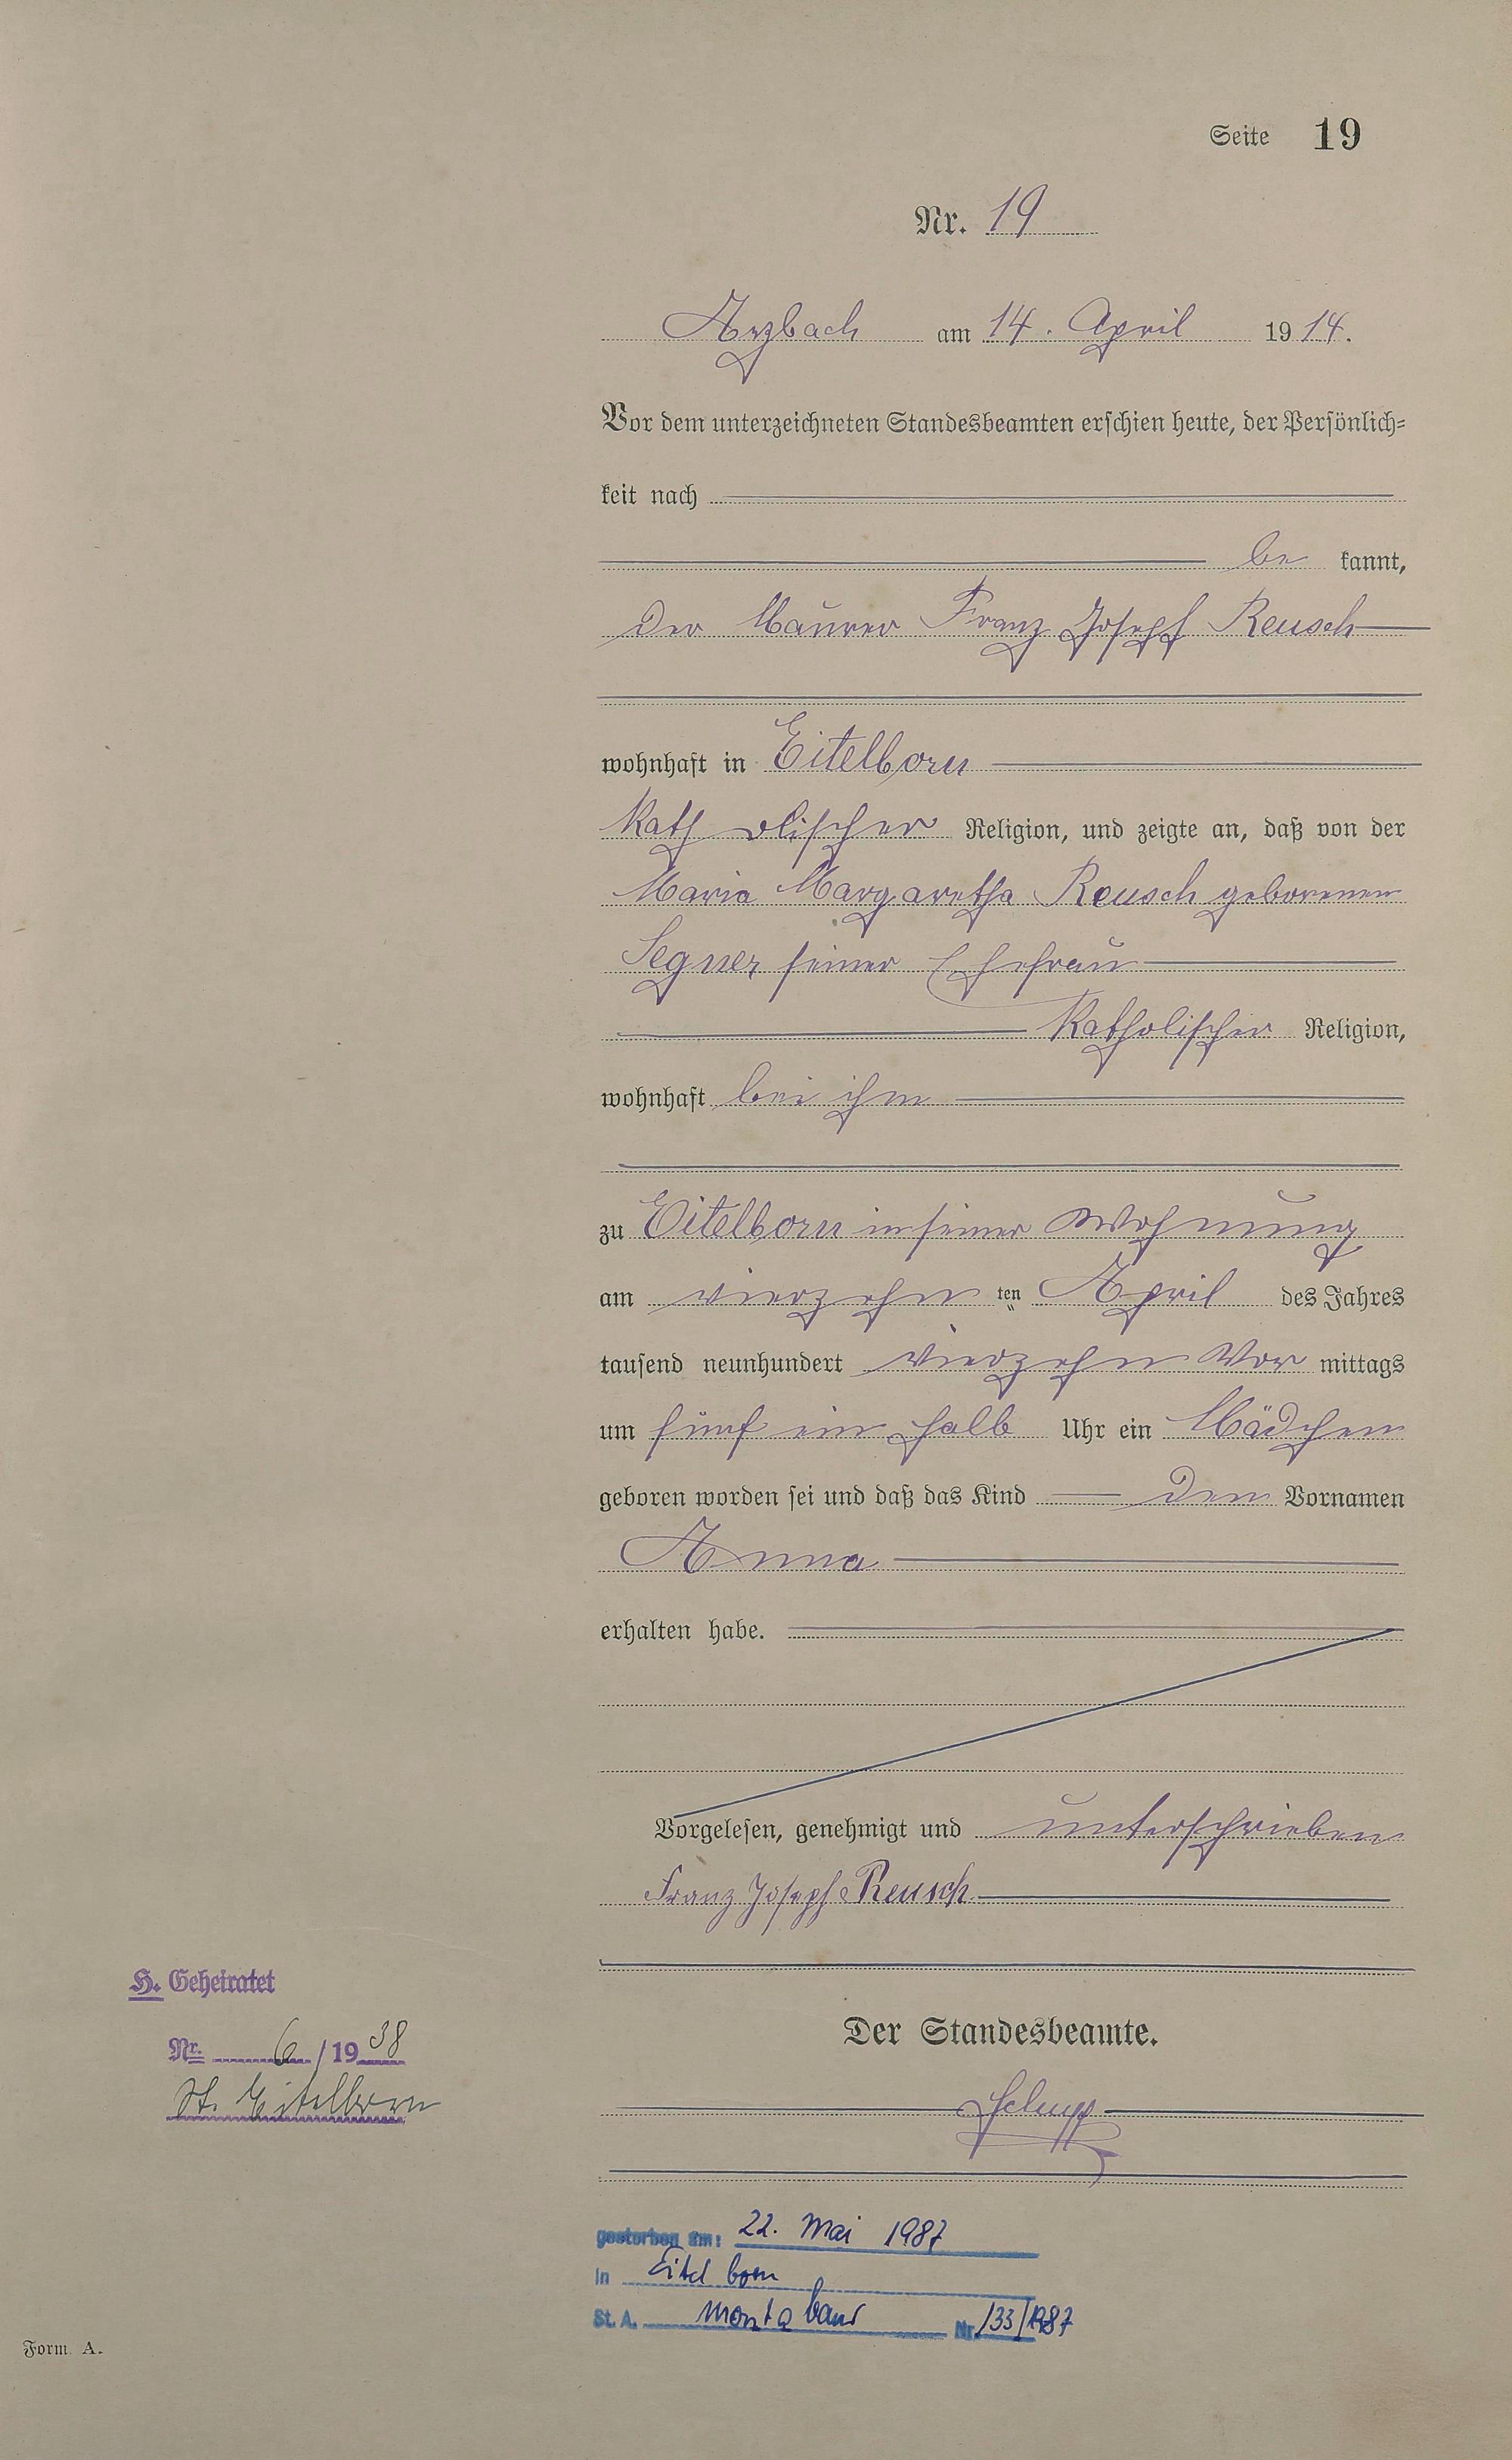 Seite 19
Nr. 19
Arzbach am 14. April 1914.
Vor dem unterzeichneten Standesbeamten erschien heute, der Persönlich=
keit nach
be kannt,
der Maurer Franz Joseph Reusch
wohnhaft in Eitelborn
Katholischer Religion, und zeigte an, daß von der
Maria Margaretha Reusch geborenen
Segner seiner Ehefrau
Katholischer Religion,
wohnhaft bei ihm
zu Eitelborn in seiner Wohnung
am vierzehn ten April des Jahres
tausend neunhundert vierzehn Vor mittags
um fünf ein halb Uhr ein Mädchen
geboren worden sei und daß das Kind den Vornamen
Anna
erhalten habe.
Vorgelesen, genehmigt und unterschrieben
Franz Joseph Reusch
H. Geheiratet
Nr. 6/1938
St. Eitelborn
Der Standesbeamte.
gestorben am: 22. Mai 1987
in Eitelborn
St. A. Montabaur Nr. 133/1987
Form. A.